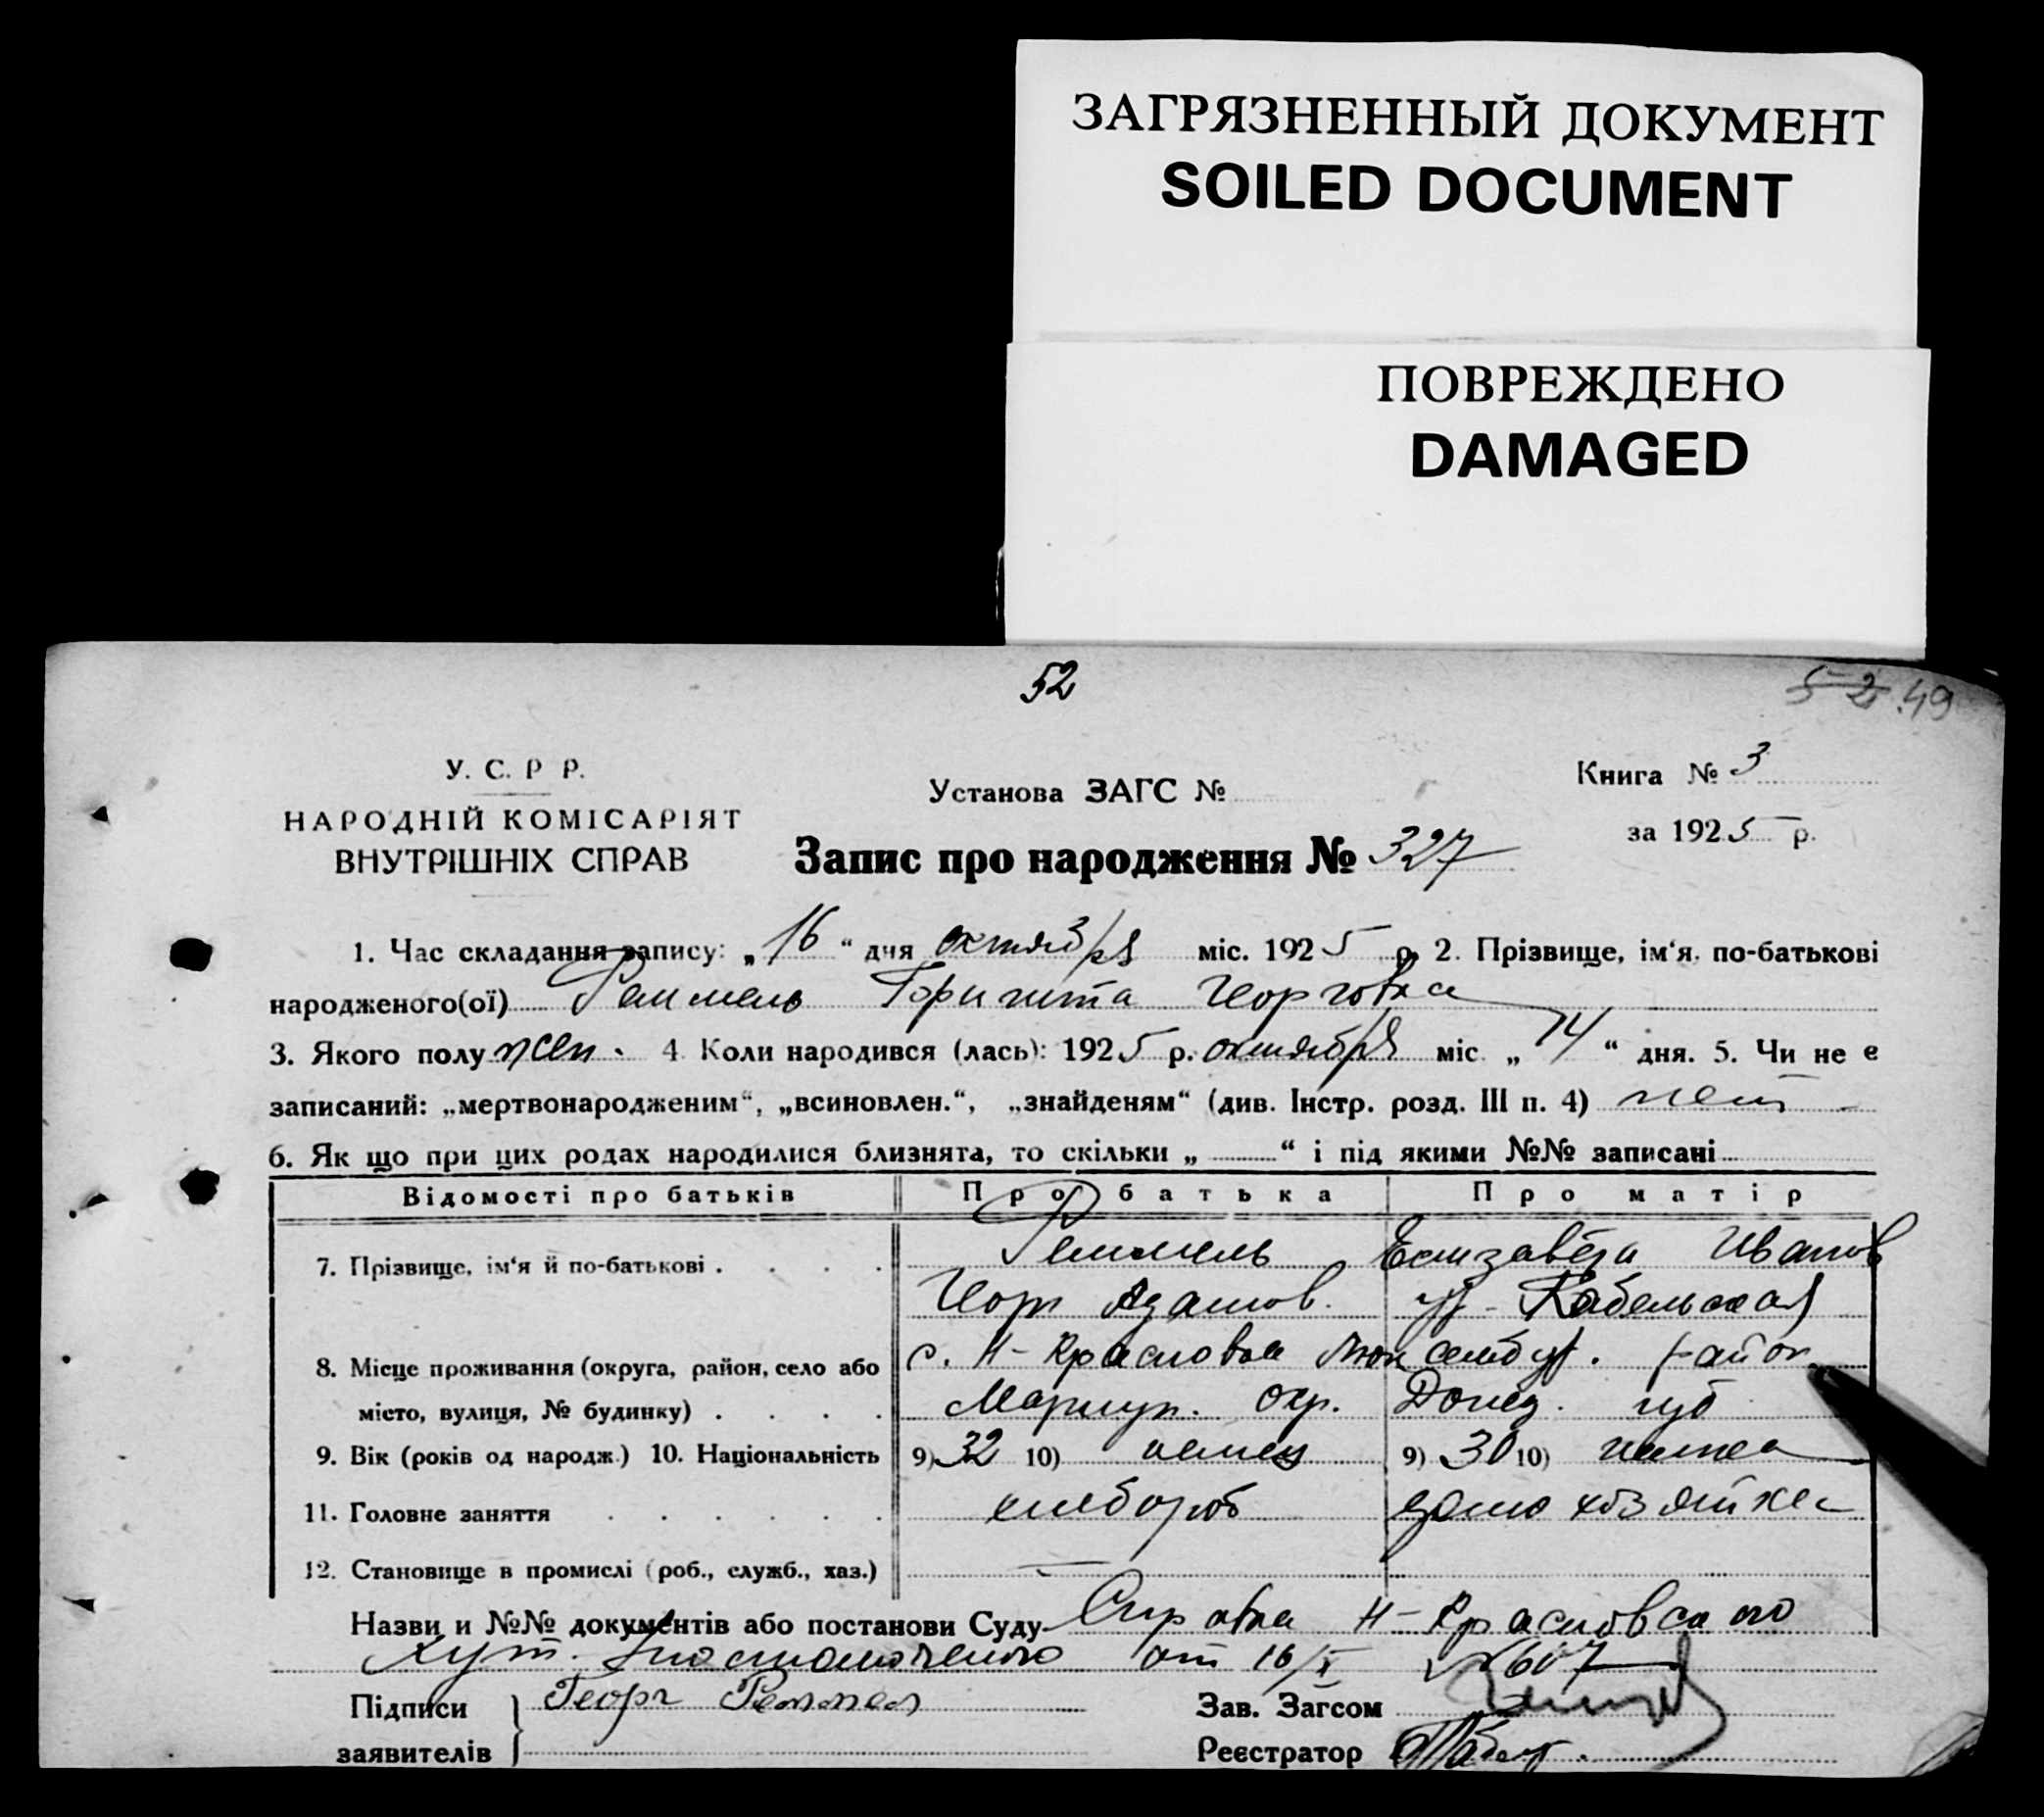 ЗАГРЯЗНЕННЫЙ ДОКУМЕНТ
SOILED DOCUMENT
ПОВРЕЖДЕНО
DAMAGED
52
5 2 .49
У. С. Р Р.
НАРОДНІЙ КОМІСАРІЯТ
ВНУТРІШНІХ СПРАВ
Установа ЗАГС №
Запис про народження № 327
Книга № 3
за 1925 р.
1. Час складання запису: „16“ дня октября міс. 1925 р. 2. Прізвище, ім‘я. по-батькові
народженого(ої) Реммель Георговна
3. Якого полу жен. 4 Коли народився (лась): 1925 р. октября міс „14“ дня. 5. Чи не є
записаний: „мертвонародженим“, „всиновлен.“, „знайденям“ (див. Інстр. розд. III п. 4) нет
6. Як що при цих родах народилися близнята, то скільки „ “ і під якими №№ записані
Відомості про батьків Про батька Про матір
7. Прізвище, ім‘я й по-батькові . . . . Реммель Елизавета Иванов
Георг Адамов. ур. Кабельская
8. Місце проживання (округа, район, село або с. Н-Красновка Люксембур. район
місто, вулиця, № будинку) . . . . Мариуп. окр. Донец. губ
9. Вік (років од народж.) 10. Національність 9) 32 10) немец 9) 30 10) немка
11. Головне заняття . . . . . . хлебороб домохозяйка
12. Становище в промислі (роб., служб., хаз.) —
Назви и №№ документів або постанови Суду Справка Н-Красновского
хут. от 16/X №607
Підписи Георг Реммел
заявителів
Зав. Загсом
Реєстратор